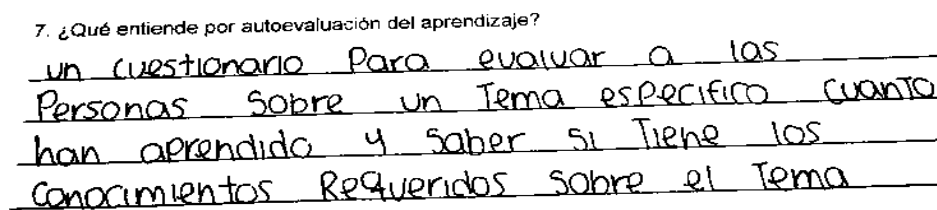 7. ¿Qué entiende por autoevaluación del aprendizaje?
un cuestionario Para evaluar a las
Personas sobre un Tema especifico cuanto
han aprendido y saber si Tiene los
conocimientos Requeridos sobre el Tema